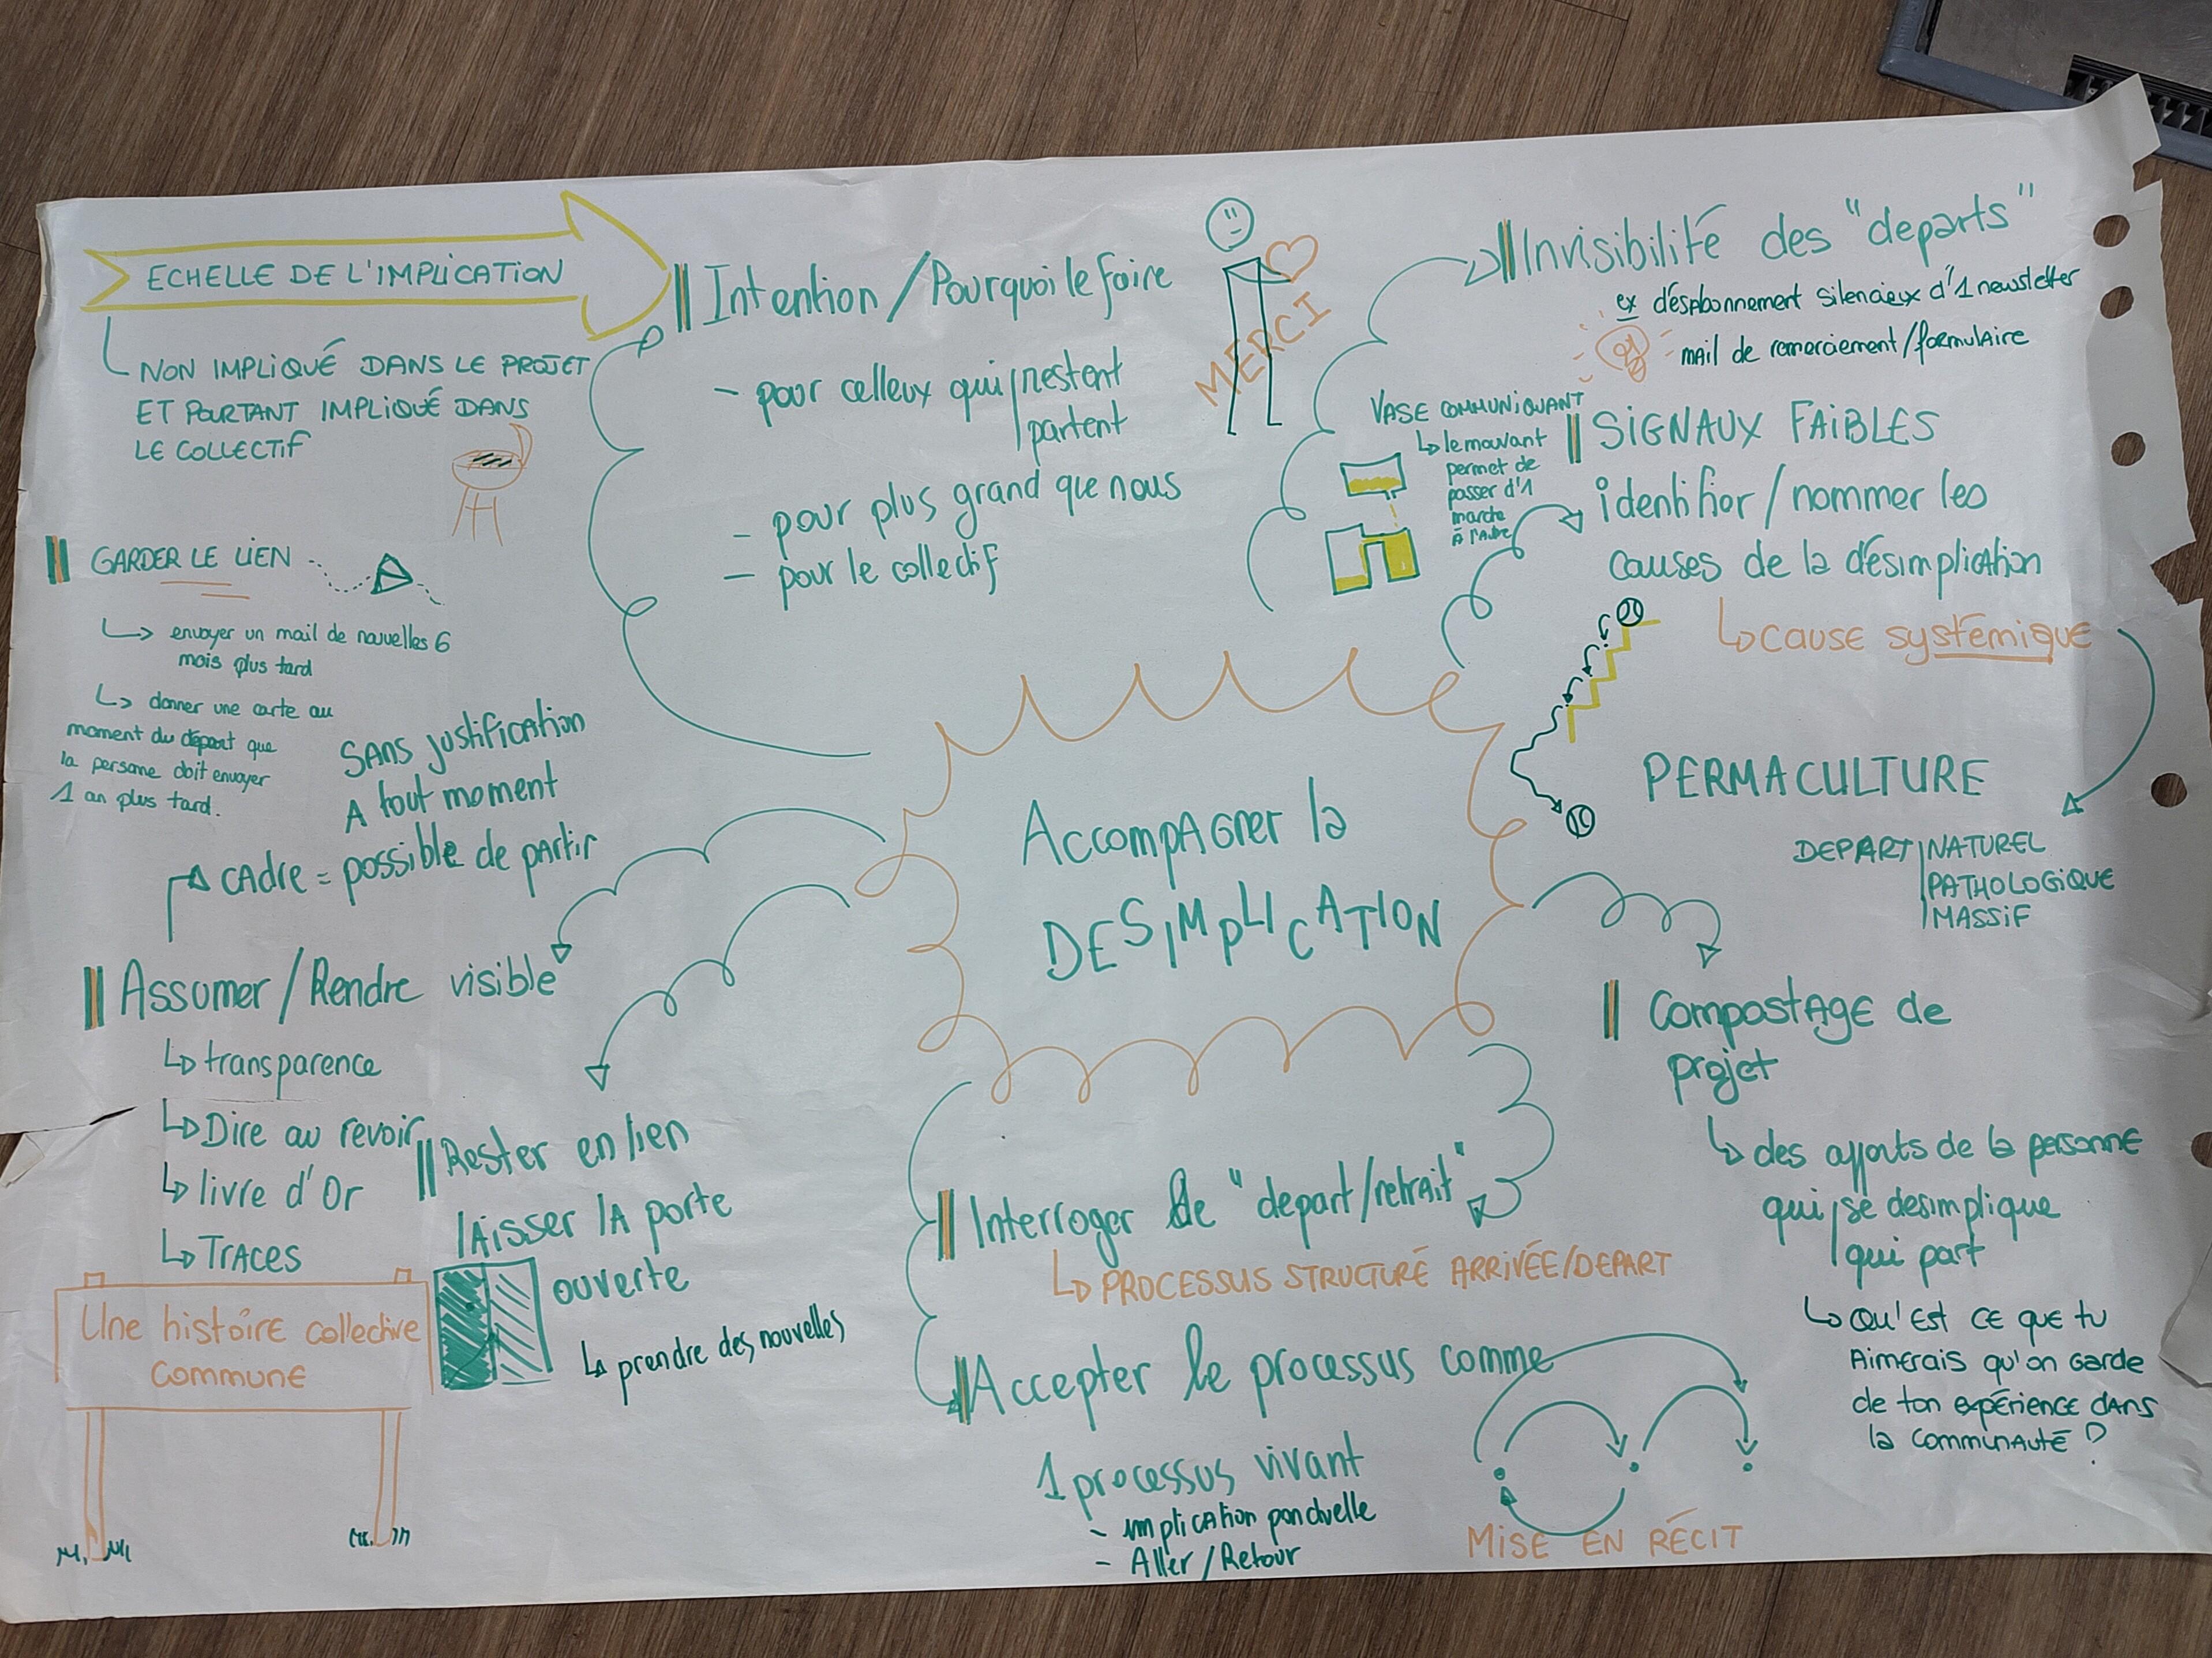 ECHELLE DE L'IMPLICATION
NON IMPLIQUÉ DANS LE PROJET
ET POURTANT IMPLIQUÉ DANS
LE COLLECTIF
Intention / Pourquoi le faire
- pour celleux qui restent
partent
- pour plus grand que nous
- pour le collectif
MERCI
Invisibilité des "departs"
ex désabonnement silencieux d'1 newsletter
mail de remerciement/formulaire
VASE COMMUNIQUANT
le mouvant
permet de
passer d'1
marche
à l'autre
SIGNAUX FAIBLES
identifier / nommer les
causes de la désimplication
cause systémique
PERMACULTURE
DEPART NATUREL
PATHOLOGIQUE
MASSIF
GARDER LE LIEN
envoyer un mail de nouvelles 6
mois plus tard
donner une carte au
moment du départ que
la persone doit envoyer
1 an plus tard.
SANS justification
A tout moment
CAdre = possible de partir
Assumer / Rendre visible
transparence
Dire au revoir
livre d'Or
Traces
Une histoire collective
commune
Accompagner la
DESIMPLICATION
Rester en lien
laisser la porte
ouverte
prendre des nouvelles
Interroger le "depart/retrait"
PROCESSUS STRUCTURÉ ARRIVÉE/DEPART
Accepter le processus comme
1 processus vivant
- implication ponctuelle
- Aller / Retour
MISE EN RÉCIT
Compostage de
projet
des apports de la personne
qui se desimplique
qui part
Qu'est ce que tu
Aimerais qu'on garde
de ton expérience dans
la communauté ?